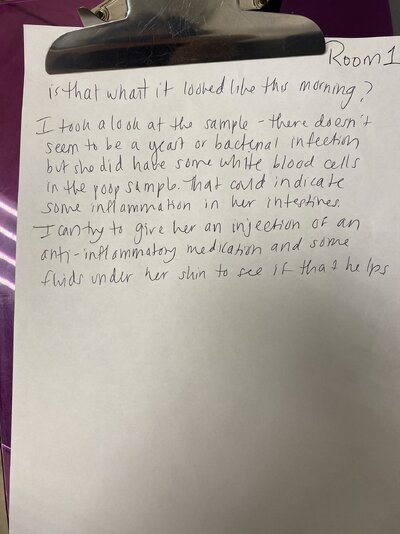 Room 1
is that what it looked like this morning?
I took a look at the sample - there doesn't
seem to be a yeast or bacterial infection
but she did have some white blood cells
in the poop sample. That could indicate
some inflammation in her intestines.
I can try to give her an injection of an
anti-inflammatory medication and some
fluids under her skin to see if that helps